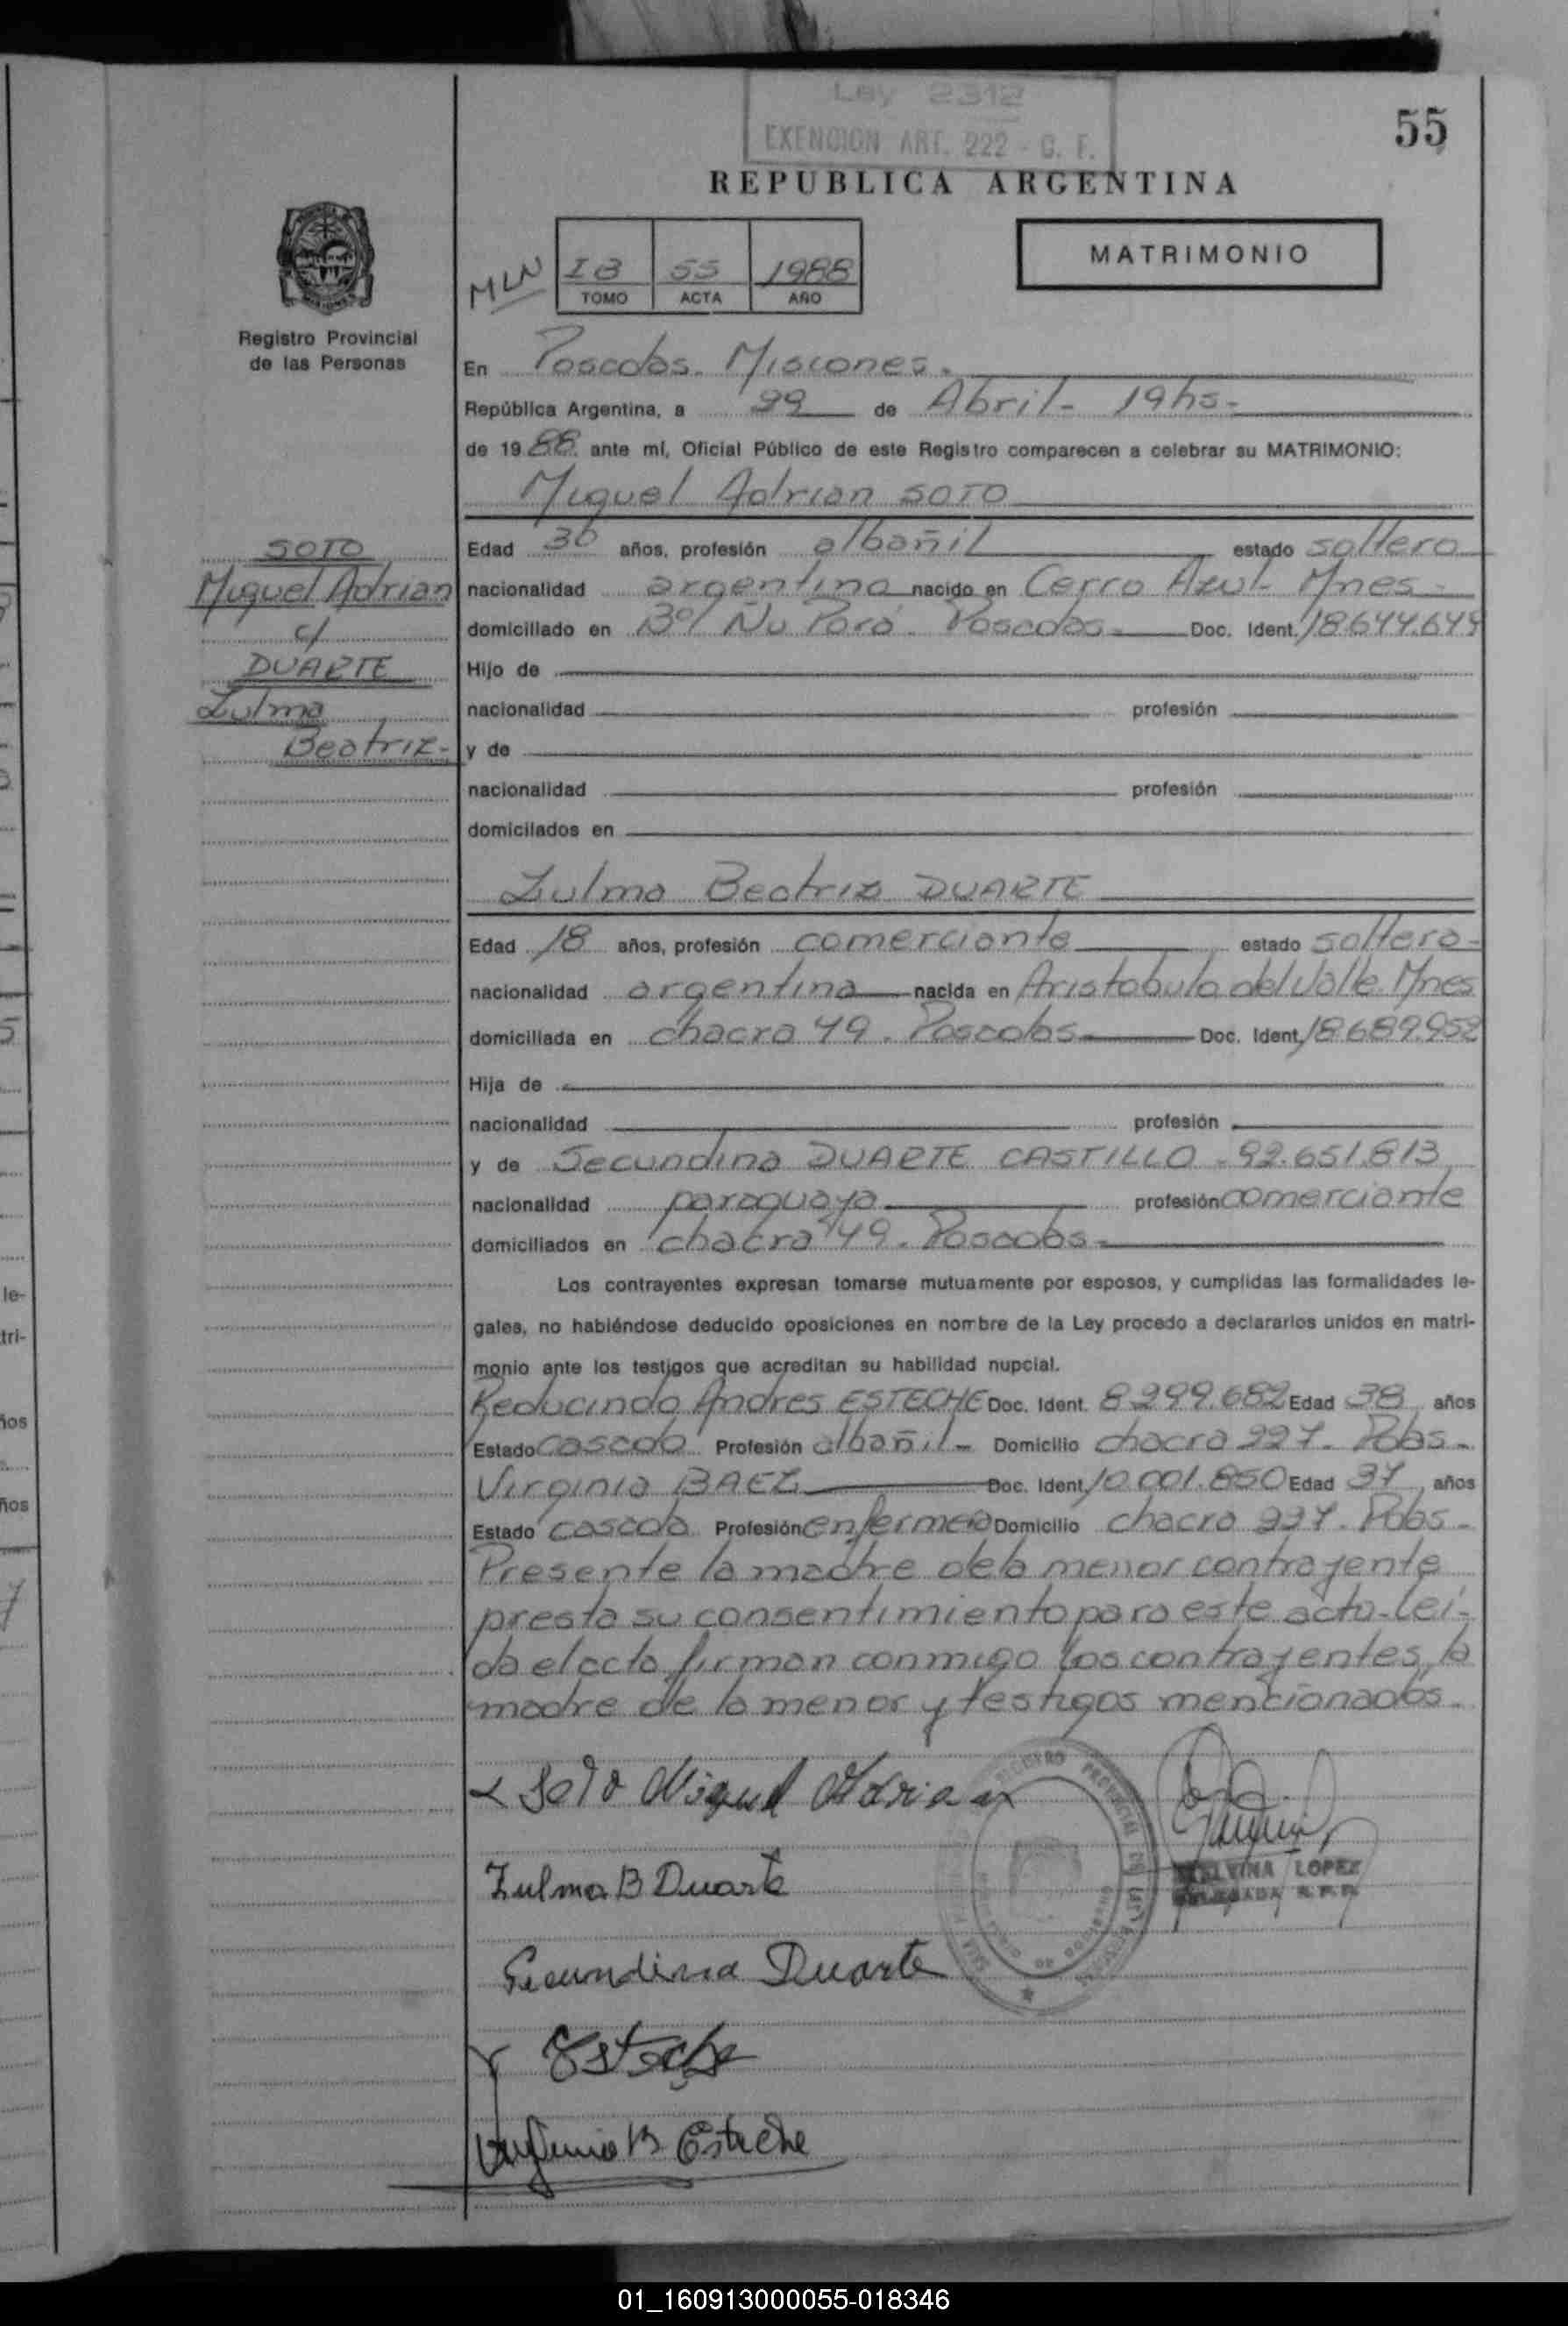 Ley 2312
EXENCION ART. 222 - C. F.
55
REPUBLICA ARGENTINA
MATRIMONIO
MLN
I B 55 1988
TOMO ACTA AÑO
Registro Provincial
de las Personas
En Posadas. Misiones.
República Argentina, a 22 de Abril - 19hs -
de 19 88 ante mí, Oficial Público de este Registro comparecen a celebrar su MATRIMONIO:
Miguel Adrian SOTO
SOTO
Miguel Adrian
c/
DUARTE
Zulma
Beatriz-
Edad 30 años, profesión albañil estado soltero
nacionalidad argentina nacido en Cerro Azul - Mnes -
domiciliado en Bº/ Ñu Porá. Posadas Doc. Ident. 18.644.644
Hijo de
nacionalidad profesión
y de
nacionalidad profesión
domicilados en
Zulma Beatriz DUARTE
Edad 18 años, profesión comerciante estado soltera-
nacionalidad argentina nacida en Aristobulo del Valle. Mnes
domiciliada en chacra 49. Posadas Doc. Ident. 18.689.952
Hija de
nacionalidad profesión
y de Secundina DUARTE CASTILLO - 92.651.813
nacionalidad paraguaya profesión comerciante
domiciliados en chacra 49. Posadas-
Los contrayentes expresan tomarse mutuamente por esposos, y cumplidas las formalidades le-
gales, no habiéndose deducido oposiciones en nombre de la Ley procedo a declararlos unidos en matri-
monio ante los testigos que acreditan su habilidad nupcial.
Reducindo Andres ESTECHE Doc. Ident. 8.299.682 Edad 38 años
Estado casado Profesión albañil- Domicilio chacra 227. Pdas-
Virginia BAEZ Doc. Ident. 10.001.850 Edad 37 años
Estado casada Profesión enfermera Domicilio chacra 227. Pdas-
Presente la madre de la menor contrayente
presta su consentimiento para este acto-leí-
da el acta firman conmigo los contrayentes, la
madre de la menor y testigos mencionados.
Soto Miguel Adrian
Zulma B Duarte
LOPEZ
Secundina Duarte
Esteche
Virginia B Esteche
01_160913000055-018346